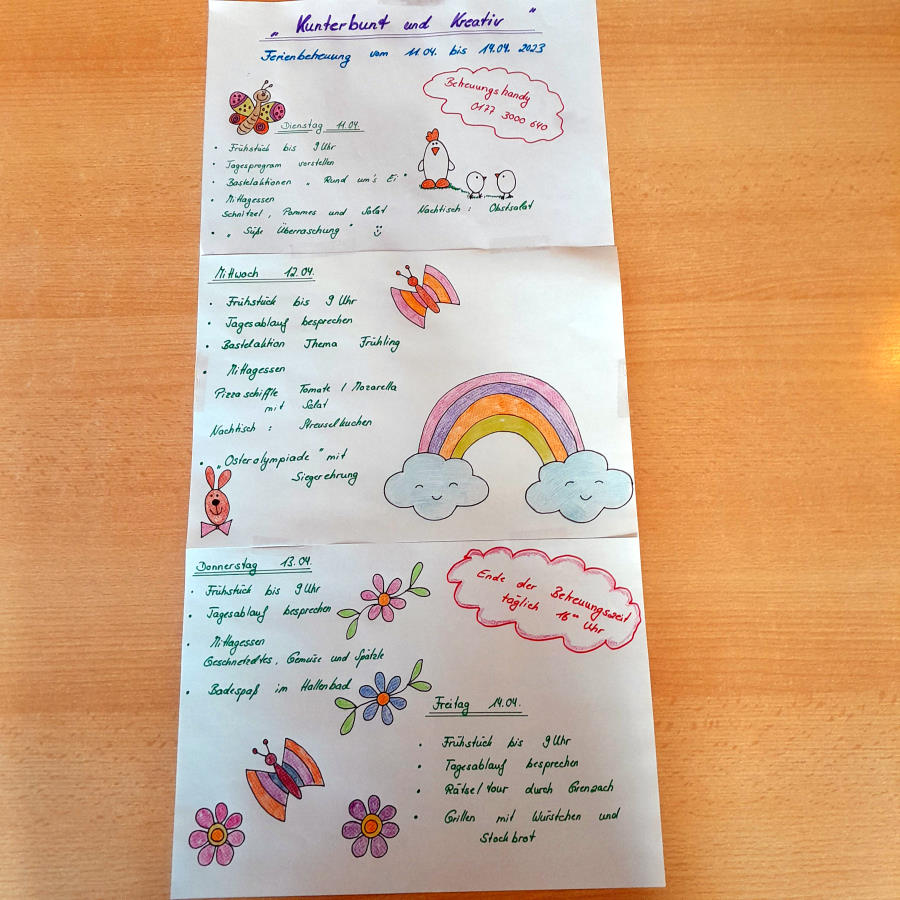 „Kunterbunt und Kreativ"
Ferienbetreuung vom 11.04. bis 14.04. 2023
Betreuungshandy
0177 3000 640
Dienstag 11.04.
• Frühstück bis 9 Uhr
• Tagesprogram vorstellen
• Bastelaktionen „Rund um's Ei"
• Mittagessen
Schnitzel, Pommes und Salat Nachtisch: Obstsalat
• „Süße Überraschung" :)
Mittwoch 12.04.
• Frühstück bis 9 Uhr
• Tagesablauf besprechen
• Bastelaktion Thema Frühling
• Mittagessen
Pizzaschiffle Tomate / Mozarella
mit Salat
Nachtisch: Streuselkuchen
• „Osterolympiade" mit
Siegerehrung
Donnerstag 13.04.
• Frühstück bis 9 Uhr
• Tagesablauf besprechen
• Mittagessen
Geschnetzeltes, Gemüse und Spätzle
• Badespaß im Hallenbad
Ende der Betreuungszeit
täglich 16°° Uhr
Freitag 14.04.
• Frühstück bis 9 Uhr
• Tagesablauf besprechen
• Rätseltour durch Grenzach
• Grillen mit Würstchen und
Stockbrot